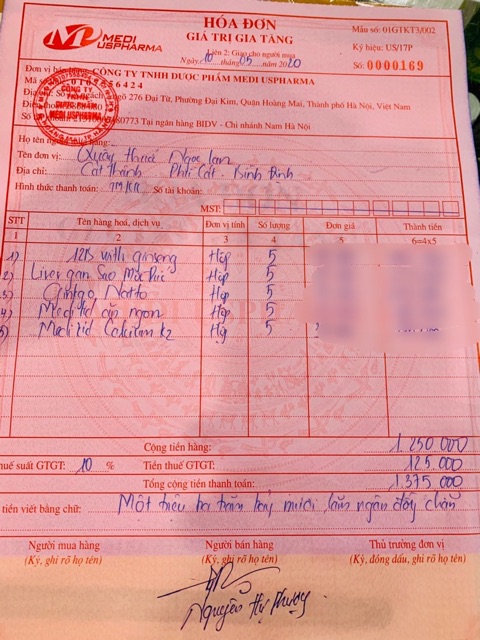 MEDI USPHARMA
HÓA ĐƠN
GIÁ TRỊ GIA TĂNG
Liên 2: Giao cho người mua
Ngày 10 tháng 05 năm 2020
Mẫu số: 01GTKT3/002
Ký hiệu: US/17P
Số: 0000169
Đơn vị bán hàng: CÔNG TY TNHH DƯỢC PHẨM MEDI USPHARMA
Mã số
Địa chỉ: Số ngách ngõ 276 Đại Từ, Phường Đại Kim, Quận Hoàng Mai, Thành phố Hà Nội, Việt Nam
Điện thoại
Số 80773 Tại ngân hàng BIDV - Chi nhánh Nam Hà Nội
CÔNG TY TNHH DƯỢC PHẨM MEDI USPHARMA
Họ tên người mua hàng:
Tên đơn vị: Quầy thuốc Ngọc Lan
Địa chỉ: Cát Thành Phù Cát - Bình Định
Hình thức thanh toán: TM/CK Số tài khoản:
MST:
STT Tên hàng hoá, dịch vụ Đơn vị tính Số lượng Đơn giá Thành tiền
1 2 3 4 5 6=4x5
1) 12B with ginseng Hộp 5
2) Liver gan Hộp 5
3) Ginkgo Natto Hộp 5
4) Medi kid ăn ngon Hộp 5
5) Medi kid Calcium k2 Hộp 5
Cộng tiền hàng: 1.250.000
Thuế suất GTGT: 10 % Tiền thuế GTGT: 125.000
Tổng cộng tiền thanh toán: 1.375.000
tiền viết bằng chữ: Một triệu ba trăm bảy mươi lăm ngàn đồng chẵn
Người mua hàng Người bán hàng Thủ trưởng đơn vị
(Ký, ghi rõ họ tên) (Ký, ghi rõ họ tên) (Ký, đóng dấu, ghi rõ họ tên)
Nguyễn Thị Phượng